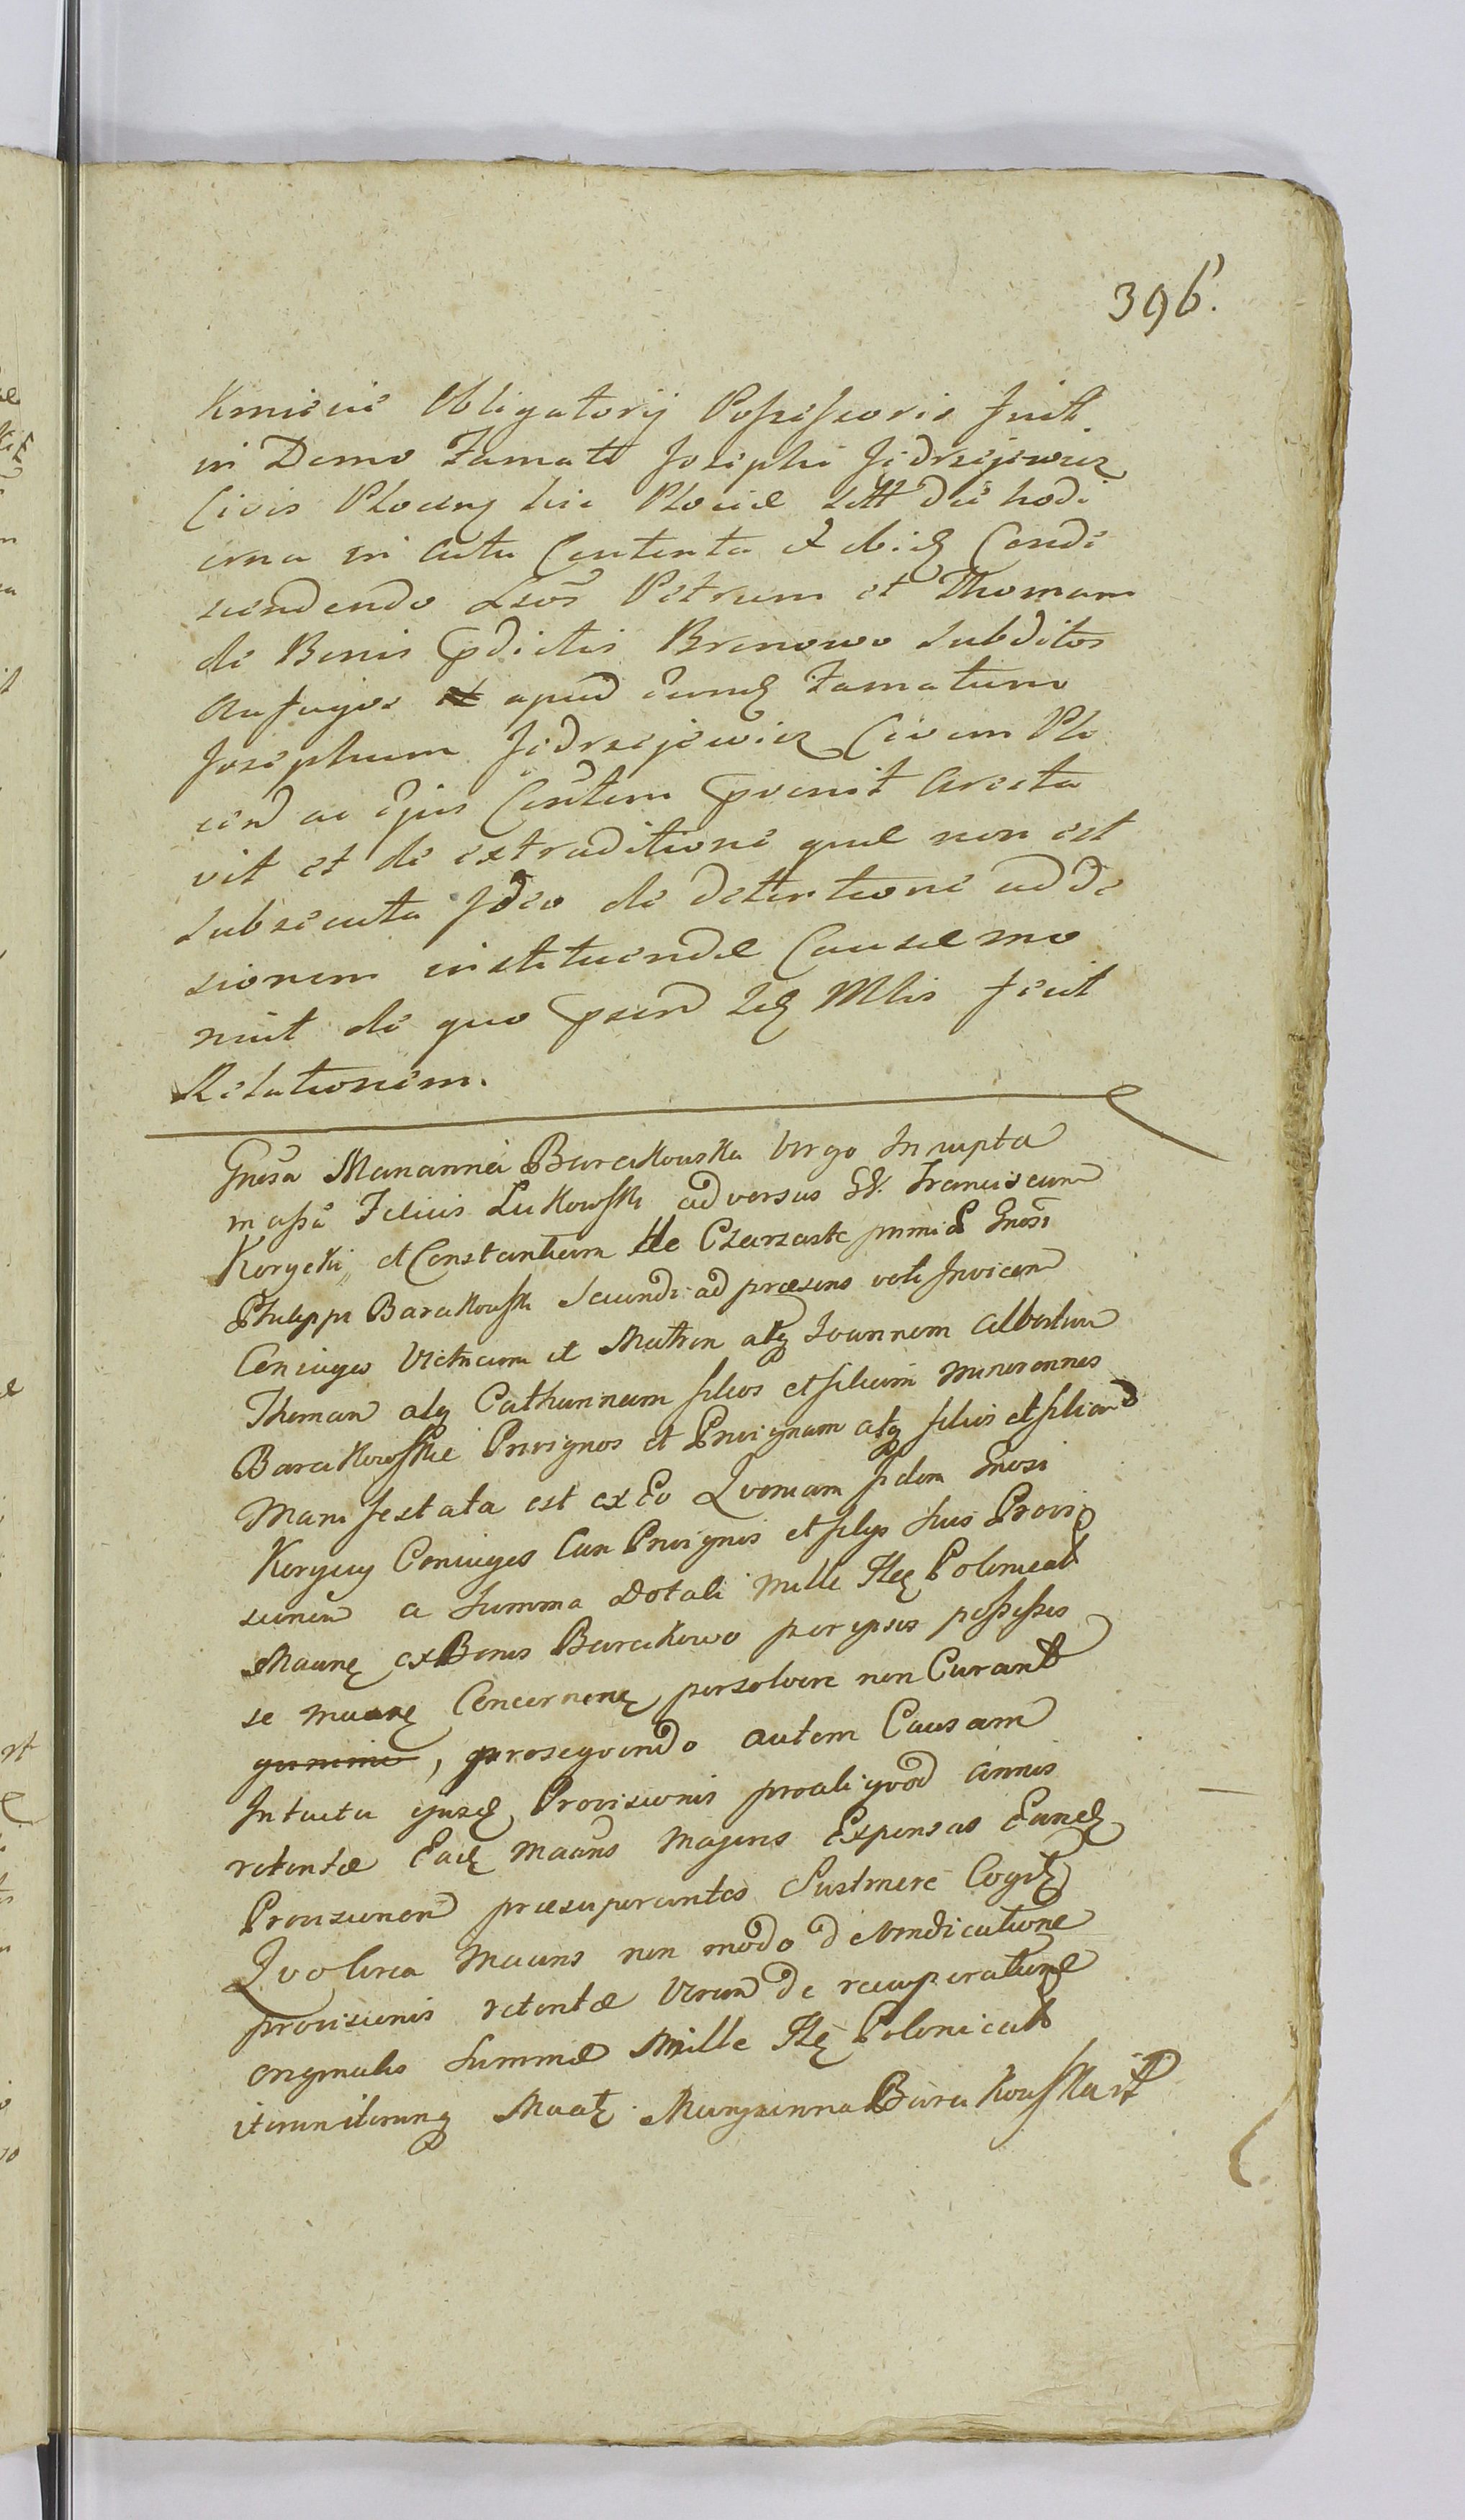 396.
Kmicie Obligatorij Possessoris fuit
in Domo Famati Josephi Jędrzejewicz
Civis Plocens hic Plociæ sitt die hodi
erna in actu Contenta et ibidq Condi
scendendo Lsos Petrum et Thomam
de Bonis pdictis Bronowo Subditos
Aufugos apud eundq Famatum
Josephum Jędrzejewicz Civem Plo
cen ac ejus Contem pvenit Aresta
vit et de extraditione quæ non est
subsecuta Ideo de detentione ad de
cionem instituendæ Causæ mo
nuit de quo psen Idq Mlis fecit
Relationem.
Gnosa Marianna Barcikowska Virgo Innupta
in assa Felicis Lukowski adversus GG. Franciscum
Korycki et Constantiam de Czarzaste primi Gnosi
Philippi Barcikowski Secundi ad præsens voti Invicem
Coniuges Vitricum et Matrem atq Joannem Albertum
Thomam atq Catharinam filios et filiam minorennes
Barcikowskie Privignos et Privignam atq filios et filiam
Manifestata est ex Eo Quoniam iidem Gnosi
Koryccy Coniuges Cum Privignis et filys suis Provi
sionem a Summa dotali Mille Flq Polonicali
Maane ex Bonis Barcikowo per ipsos possessis
se maane Concernene persolvere non Curant
, prosequendo autem Causam
Intuitu ejusdq Provisionis pro aliquod annis
retentæ Eadq Maans Majores Expensas Eandq
Provisionem præsuperantes Sustinere Cogitq
Quo circa Maans non modo de Vindicatione
provisionis retentæ Verum de recuperatione
originalis Summæ Mille Flq Polonicali
iterum iterumq Maatq. Maryanna Barcikowska